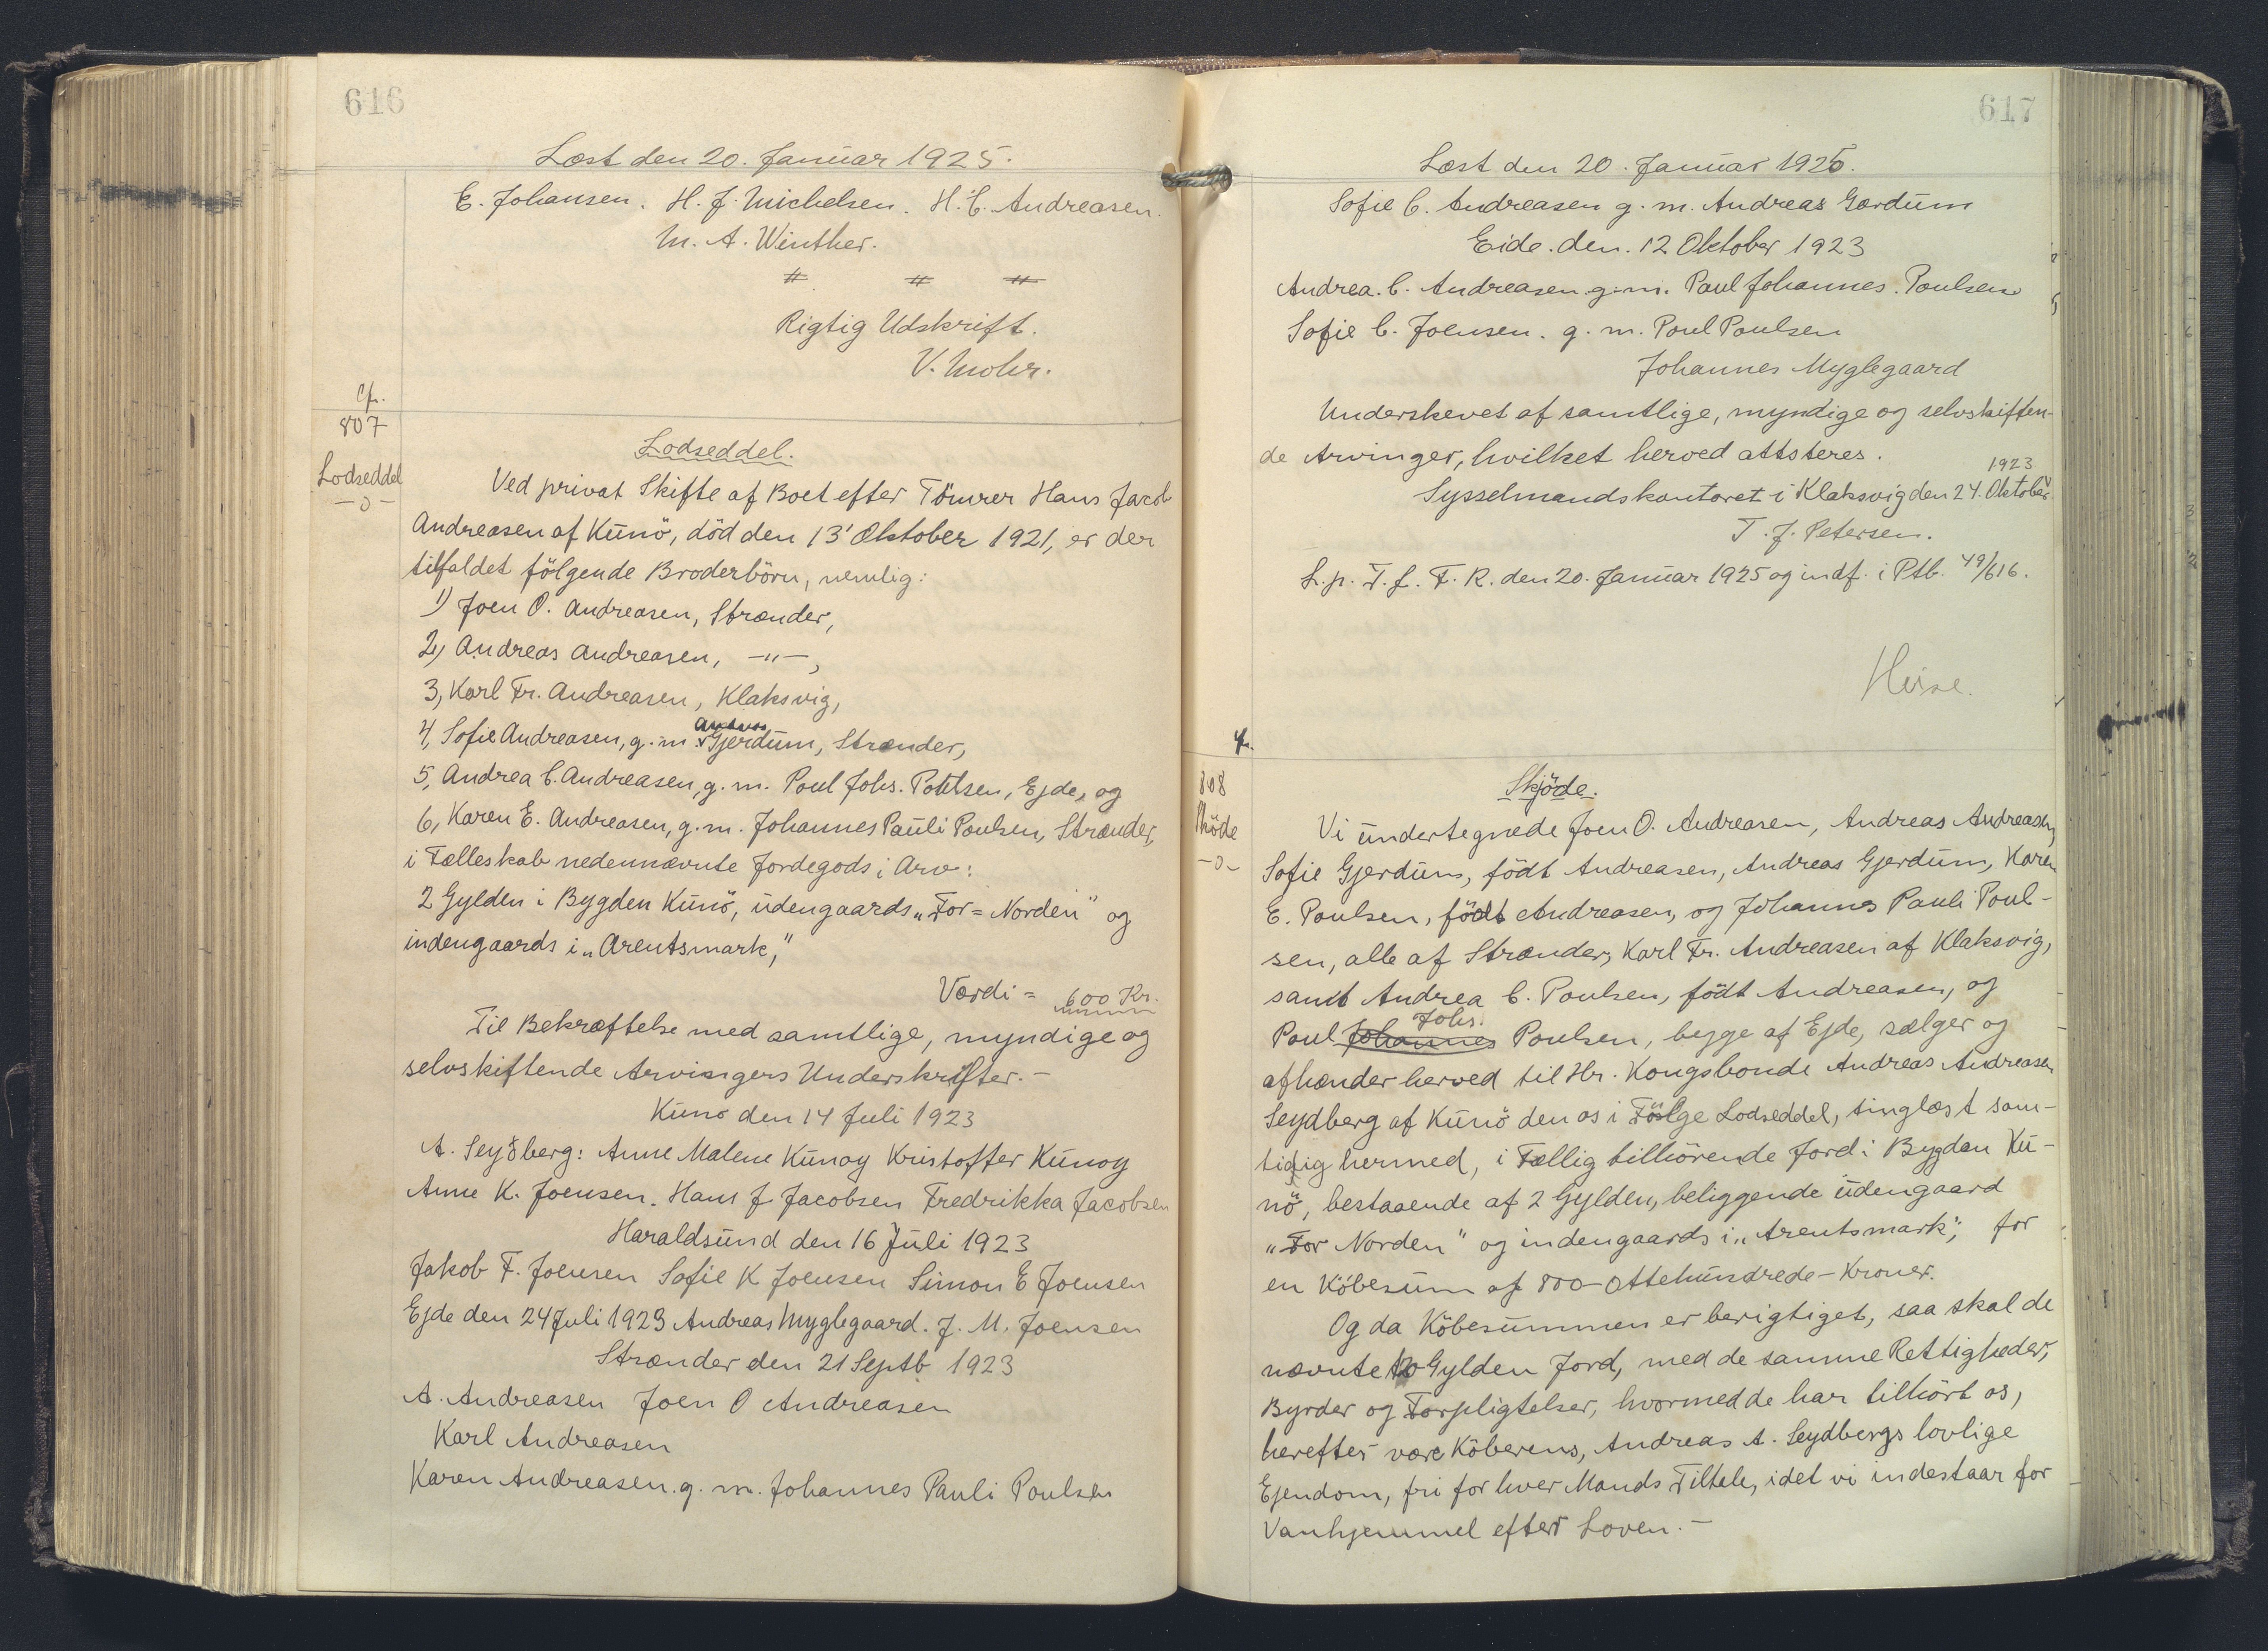 616
Læst den 20. Januar 1925.
E. Johansen. H. J. Michelsen. H. C. Andreasen.
M. A. Winther.
# # #
Rigtig Udskrift.
V. Mohr.
Cfr.
807
Lodseddel
-o-
Lodseddel.
Ved privat Skifte af Boet efter Tömrer Hans Jacob
Andreasen af Kunö, död den 13' Oktober 1921, er der
tilfaldet fölgende Broderbörn, nemlig:
1) Joen O. Andreasen, Strænder,
2) Andreas Andreasen, -"-,
3, Karl Fr. Andreasen, Klaksvig,
4, Sofie Andreasen, g. m. Andreas Gjerdum, Strænder,
5, Andrea C. Andreasen, g. m. Poul Johs. Poulsen, Ejde, og
6, Karen E. Andreasen, g. m. Johannes Pauli Poulsen, Strænder,
i Fælleskab nedennævnte Jordegods i Arv:
2 Gylden i Bygden Kunö, udengaards „For=Norden" og
indengaards i „Arentsmark,"
Værdi = 600 Kr.
Til Bekræftelse med samtlige, myndige og
selvskiftende Arvingers Underskrifter.-
Kunö den 14 Juli 1923
A. Seyðberg: Anne Malene Kunoy Kristoffer Kunoy
Anne K. Joensen. Hans J Jacobsen Fredrikka Jacobsen
Haraldsund den 16 Juli 1923
Jakob F. Joensen Sofie K Joensen Simon E Joensen
Ejde den 24 Juli 1923 Andreas Myglegaard. J. M. Joensen
Strænder den 21 Septb 1923
A. Andreasen Joen O Andreasen
Karl Andreasen
Karen Andreasen. g. m. Johannes Pauli Poulsen
617
Læst den 20. Januar 1925.
Sofie C. Andreasen g. m. Andreas Gærdum
Eide. den. 12 Oktober 1923
Andrea. C. Andreasen. g. m. Paul Johannes. Poulsen
Sofie C. Joensen. g. m. Poul Poulsen
Johannes Myglegaard
Underskevet af samtlige, myndige og selvskiften-
de Arvinger, hvilket herved attsteres.
Sysselmandskontoret i Klaksvig den 24. Oktober 1923
T. J. Petersen.
L. p. T. f. F. R. den 20. Januar 1925 og indf. i Ptb. 49/616.
Cfr.
808
Sköde
-o-
Skjöde.
Vi undertegnede Joen O. Andreasen, Andreas Andreasen,
Sofie Gjerdum, födt Andreasen, Andreas Gjerdum, Karen
E. Poulsen, födt Andreasen, og Johannes Pauli Poul-
sen, alle af Strænder, Karl Fr. Andreasen af Klaksvig,
samt Andrea C. Poulsen, födt Andreasen, og
Poul Johannes Johs. Poulsen, begge af Ejde, sælger og
afhænder herved til Hr. Kongsbonde Andreas Andreasen
Seydberg af Kunö den os i Fölge Lodseddel, tinglæst sam-
tidig hermed, i Fællig tilhörende Jord i Bygden Ku-
nö, bestaaende af 2 Gylden, beliggende udengaard
„For Norden" og indengaards i „Arentsmark", for
en Köbesum af 800 - Ottehundrede - Kroner.
Og da Köbesummen er berigtiget, saa skal de
nævnte to Gylden Jord, med de samme Rettigheder,
Byrder og Forpligtelser, hvormed de har tilhört os,
herefter være Köberens, Andreas A. Seydbergs lovlige
Ejendom, fri for hver Mands Tiltale, idet vi indestaar for
Vanhjemmel efter Loven.-